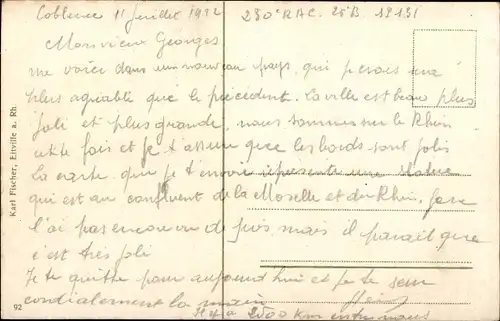 Coblence 11 Juillet 1922
280e RAC. 25B SP 131
Mon vieux Georges
me voici dans un nouveau pays qui je crois sera
plus agréable que le précédent. La ville est beau plus
joli et plus grande, nous sommes sur le Rhin
cette fois et je t assure que les bords sont jolis
la carte que je t envoie représente une statue
qui est au confluent de la Moselle et du Rhin, je ne
l'ai pas encore vu de près mais il parait que
c'est très joli
Je te quitte pour aujourd hui et je te serre
cordialement la main
Il y a 2500 km entre nous
Karl Fischer, Eltville a. Rh.
92